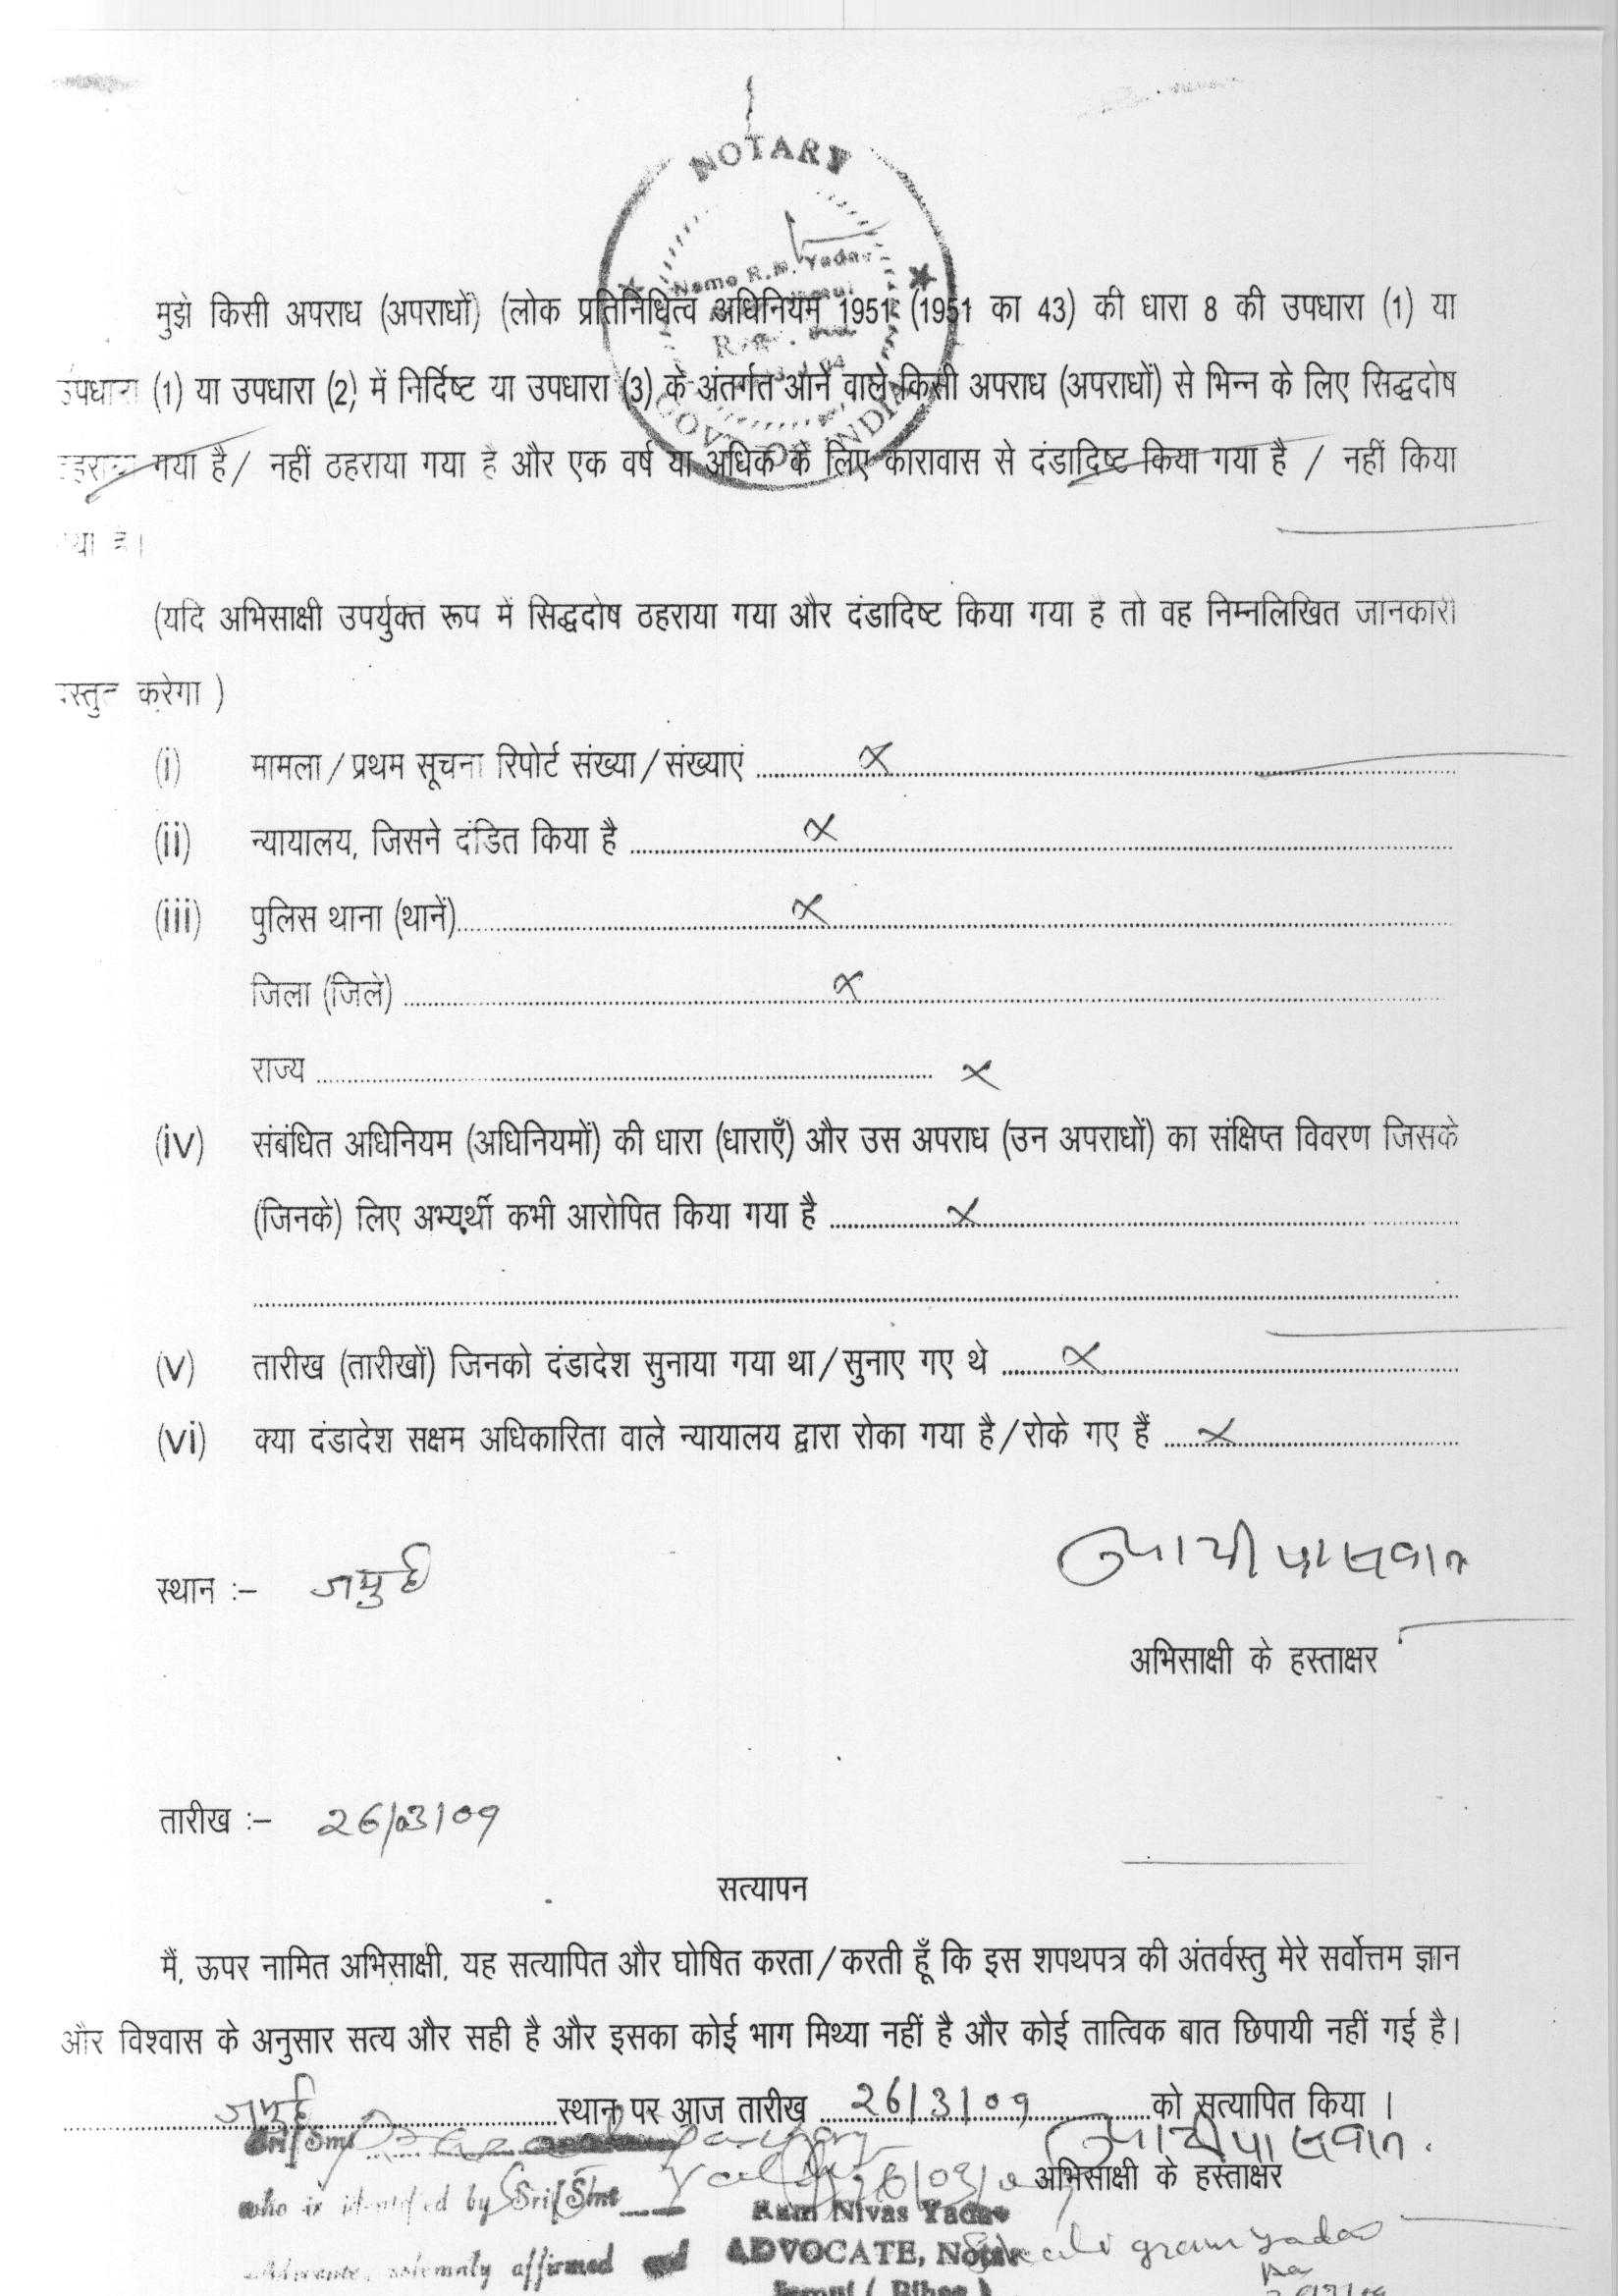 NOTARY
Name R.N. Yadav
GOVT. OF INDIA
मुझे किसी अपराध (अपराधों) (लोक प्रतिनिधित्व अधिनियम 1951 (1951 का 43) की धारा 8 की उपधारा (1) या
उपधारा (1) या उपधारा (2) में निर्दिष्ट या उपधारा (3) के अंतर्गत आने वाले किसी अपराध (अपराधों) से भिन्न के लिए सिद्धदोष
ठहराया गया है / नहीं ठहराया गया है और एक वर्ष या अधिक के लिए कारावास से दंडादिष्ट किया गया है / नहीं किया
गया है।
(यदि अभिसाक्षी उपर्युक्त रूप में सिद्धदोष ठहराया गया और दंडादिष्ट किया गया है तो वह निम्नलिखित जानकारी
प्रस्तुत करेगा )
(i) मामला / प्रथम सूचना रिपोर्ट संख्या / संख्याएं ........ x
(ii) न्यायालय, जिसने दंडित किया है ........ x
(iii) पुलिस थाना (थानें)........ x
जिला (जिले) ........ x
राज्य ........ x
(iv) संबंधित अधिनियम (अधिनियमों) की धारा (धाराएँ) और उस अपराध (उन अपराधों) का संक्षिप्त विवरण जिसके
(जिनके) लिए अभ्यर्थी कभी आरोपित किया गया है ........ x
(v) तारीख (तारीखों) जिनको दंडादेश सुनाया गया था / सुनाए गए थे ........ x
(vi) क्या दंडादेश सक्षम अधिकारिता वाले न्यायालय द्वारा रोका गया है / रोके गए हैं ........ x
पासवान
स्थान :– जमुई
अभिसाक्षी के हस्ताक्षर
तारीख :– 26/03/09
सत्यापन
मैं, ऊपर नामित अभिसाक्षी, यह सत्यापित और घोषित करता / करती हूँ कि इस शपथपत्र की अंतर्वस्तु मेरे सर्वोत्तम ज्ञान
और विश्वास के अनुसार सत्य और सही है और इसका कोई भाग मिथ्या नहीं है और कोई तात्विक बात छिपायी नहीं गई है।
जमुई स्थान पर आज तारीख 26/3/09 को सत्यापित किया ।
Sri/Smt पासवान
अभिसाक्षी के हस्ताक्षर
who is identified by Sri/Smt
Ram Nivas Yadav
Advocate, solemnly affirmed and
ADVOCATE, Notary
Jamui ( Bihar )